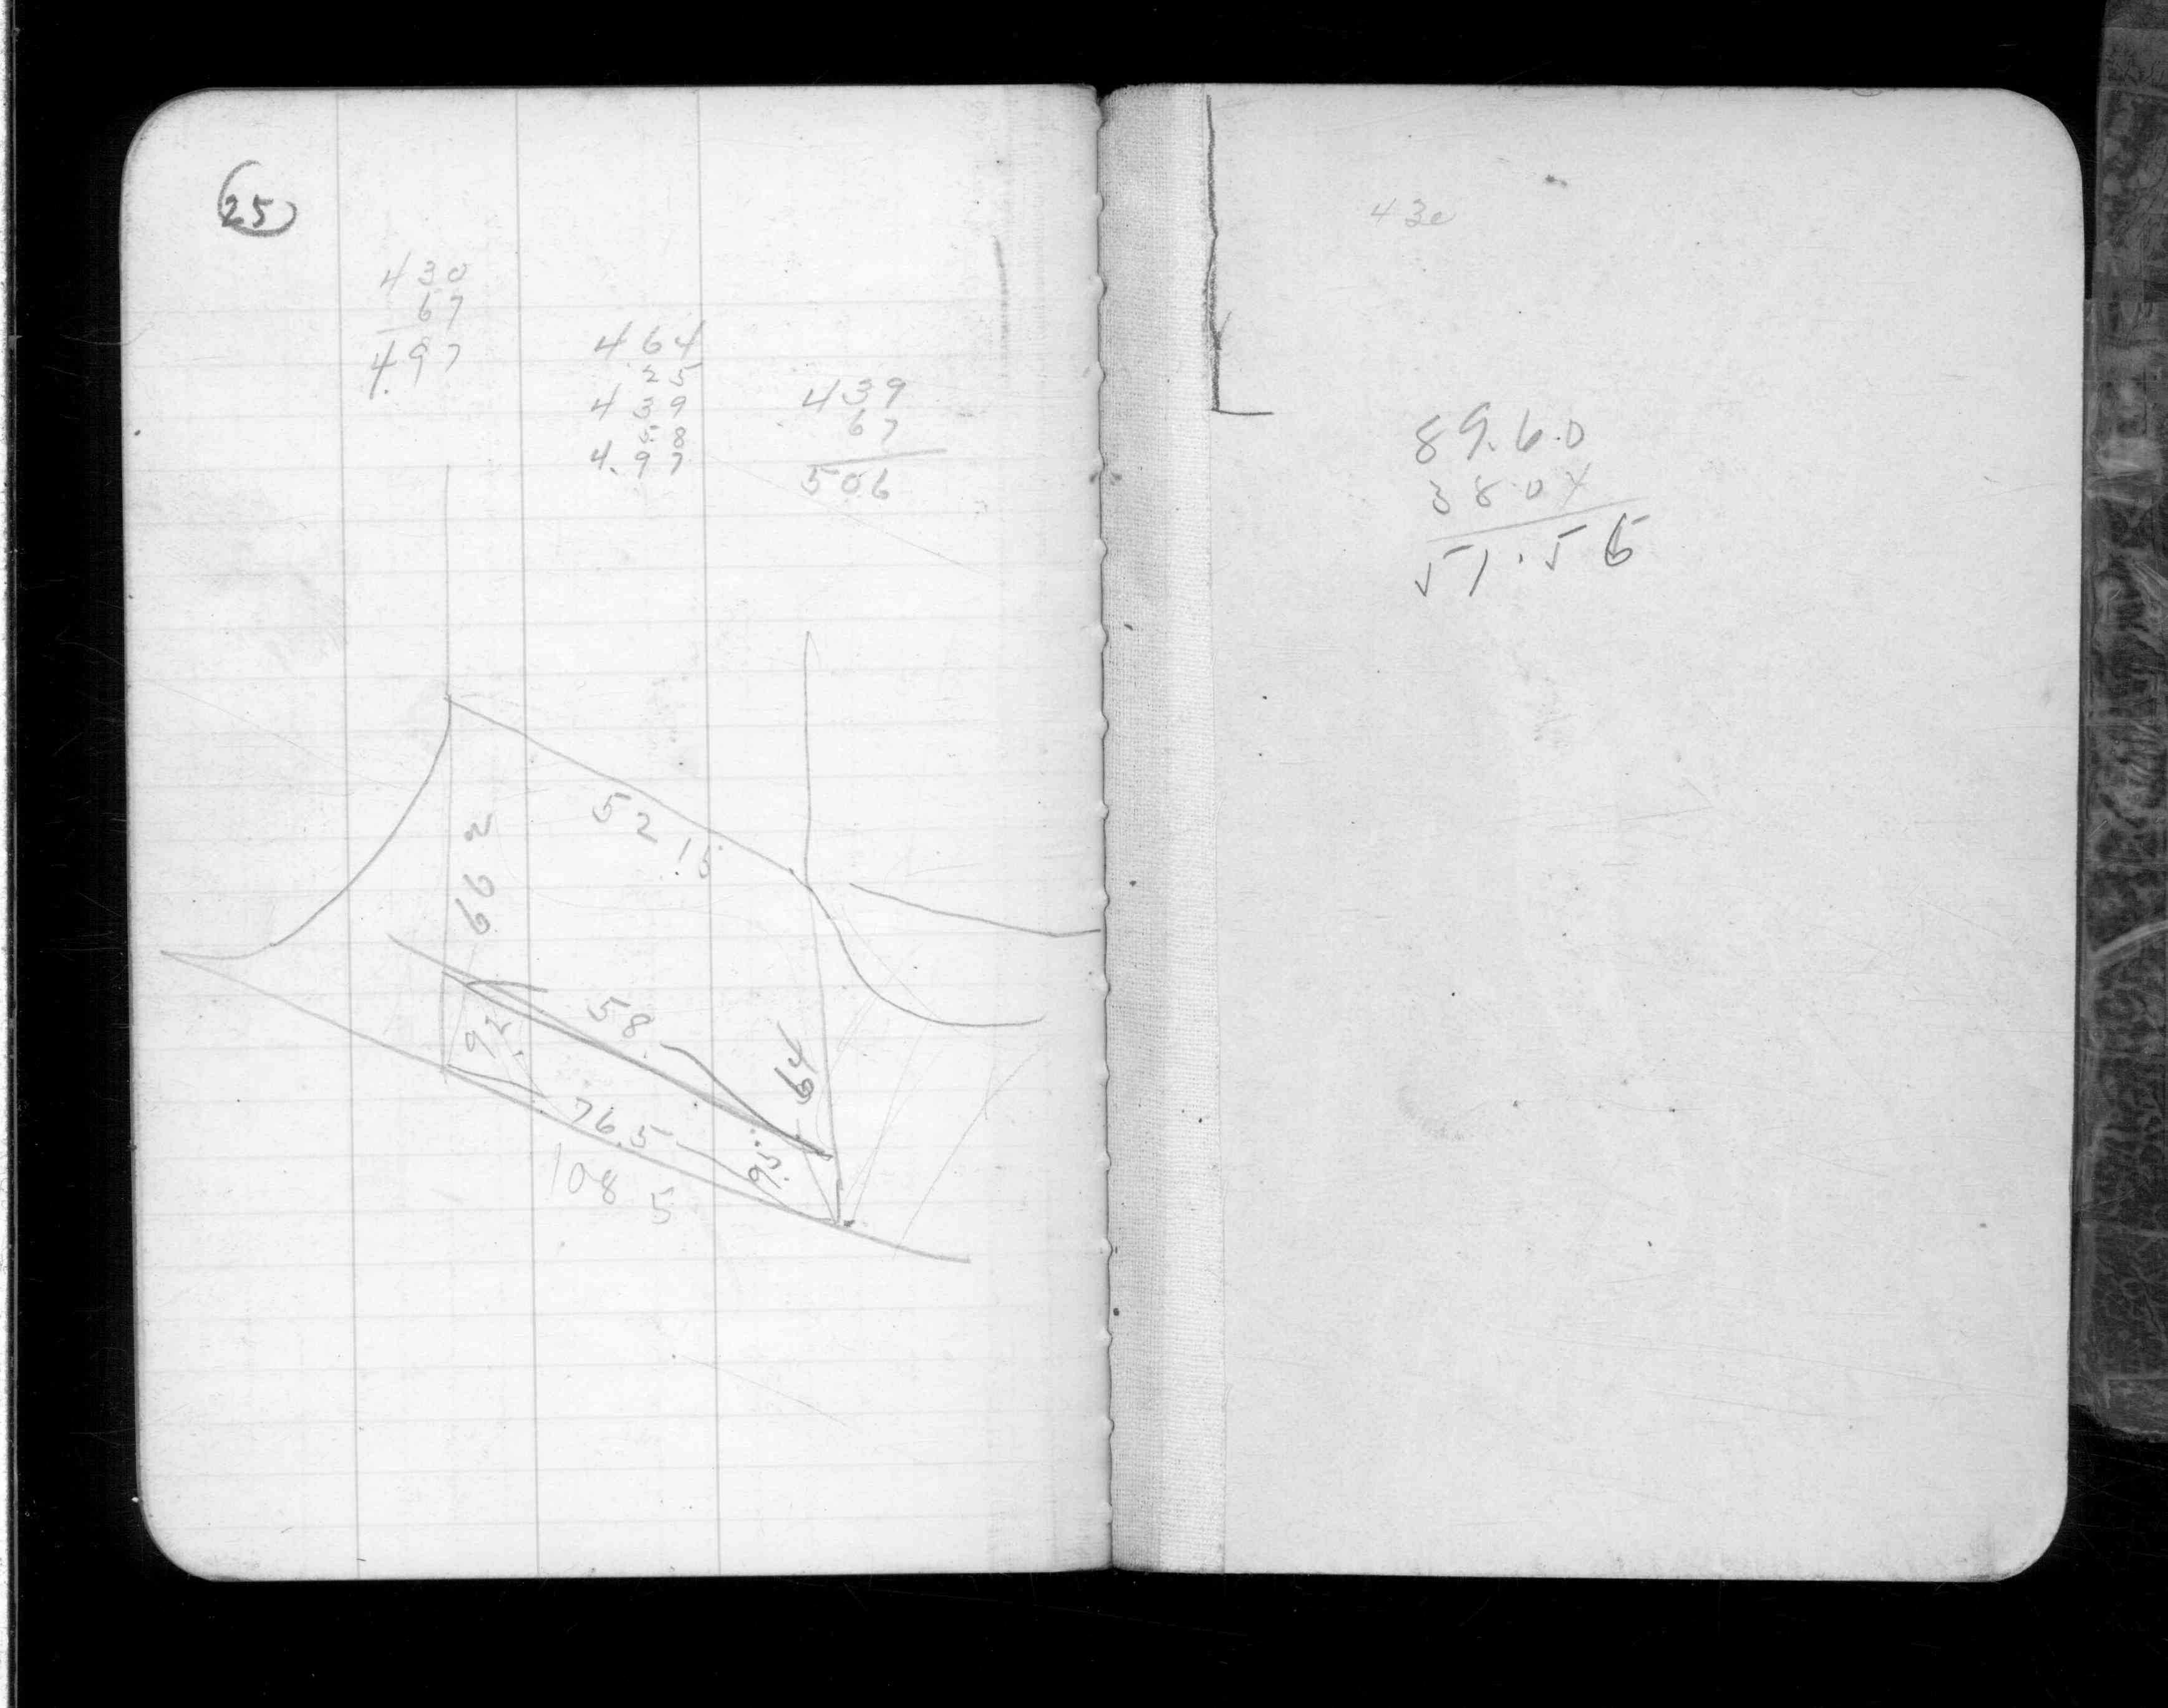 25
430
67
497
464
25
439
58
4.97
439
67
506
52.15
66 2
58.
92.
64
76.5
95.
108 5
430
89.60
3804
51.56